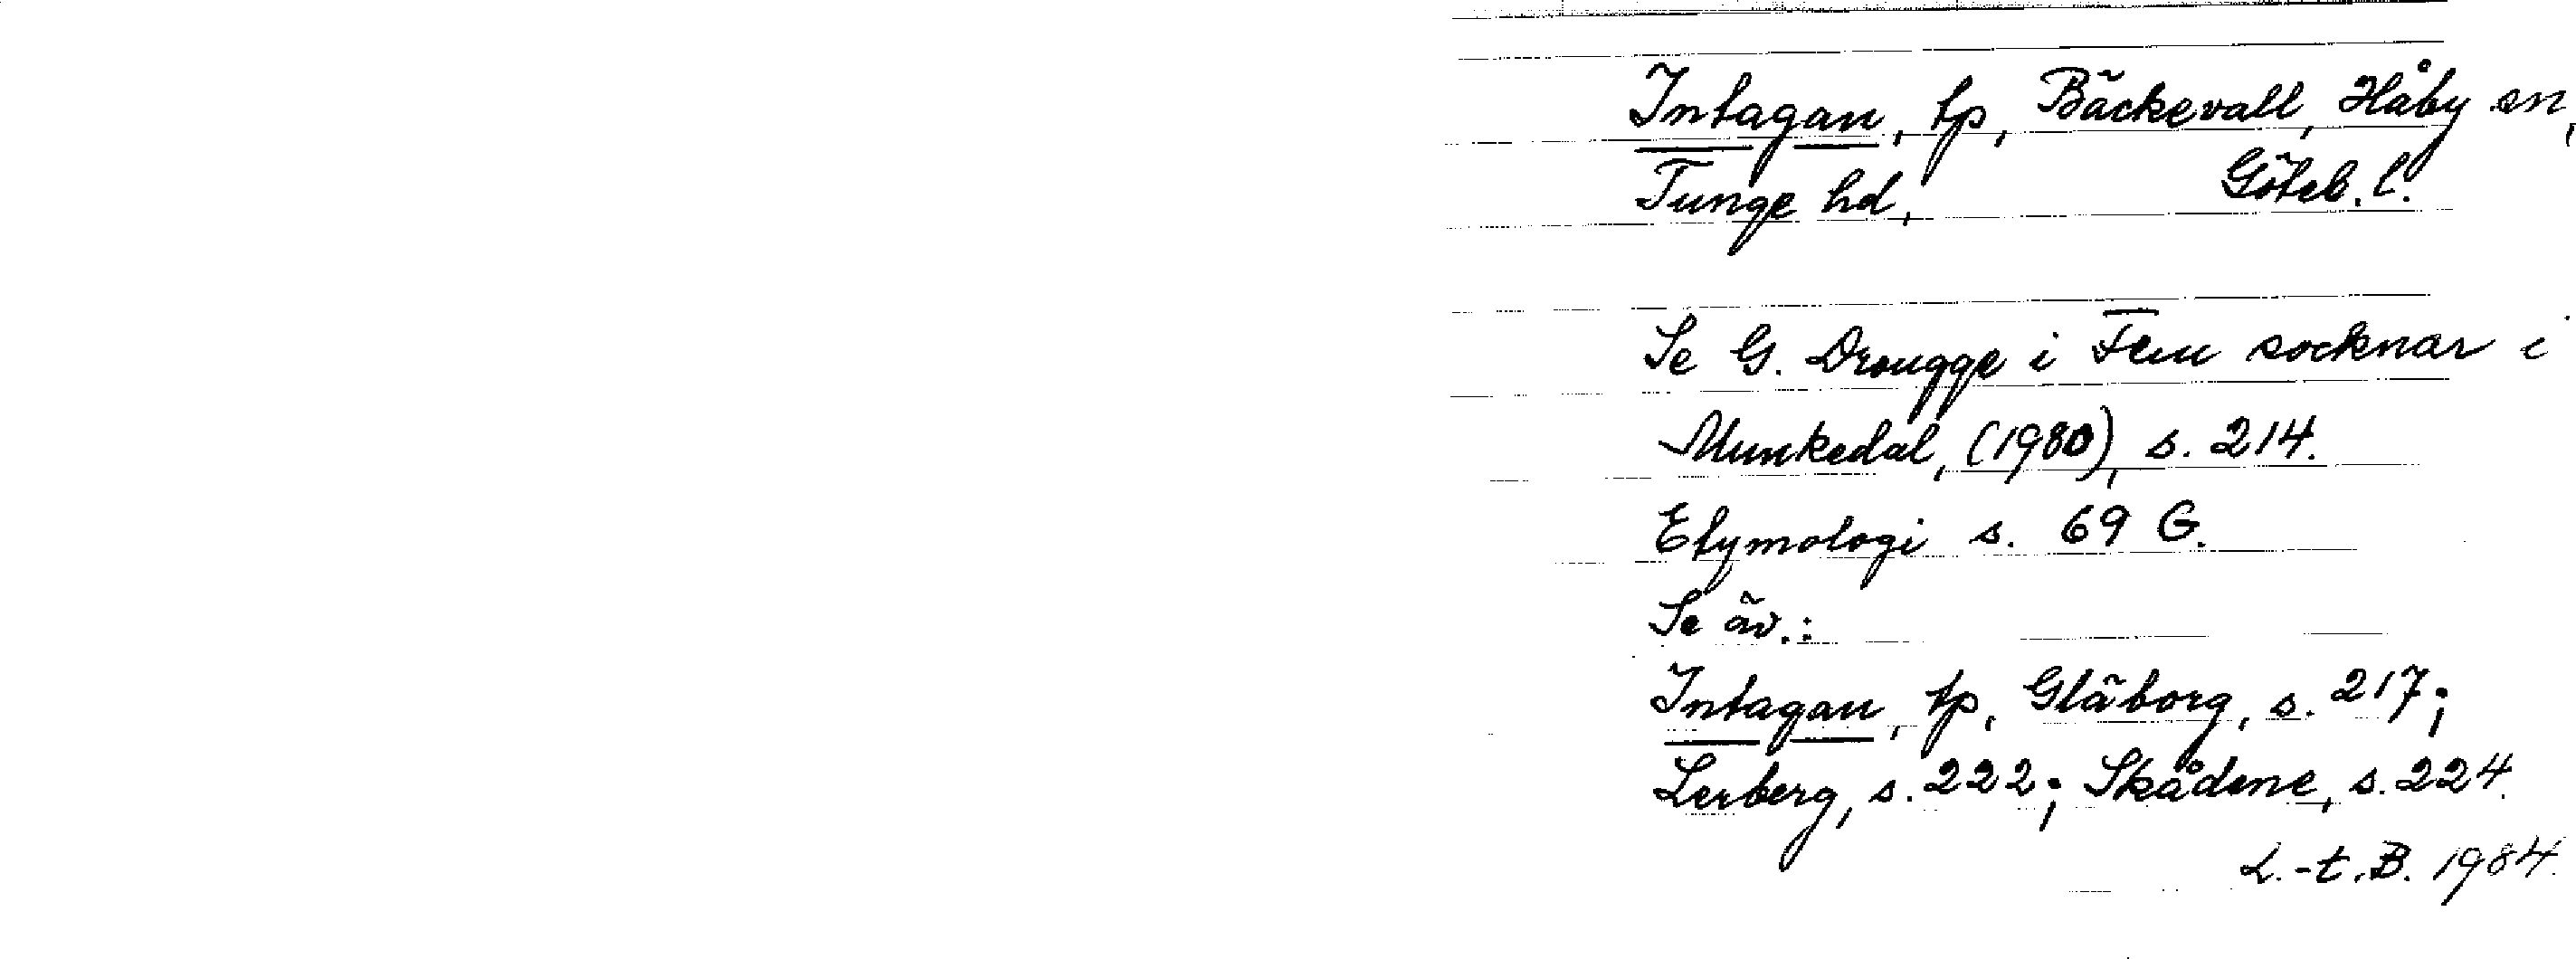 Intagan, tp, Bäckevall, Håby sn,
Tunge hd, Göteb. l.
Se G. Drougge i Fem socknar i
Munkedal, (1980), s. 214.
Etymologi s. 69 G.
Se äv.:
Intagan, tp, Glåborg, s. 217;
Lerberg, s. 222; Skådene, s. 224.
L.-t. B. 1984.